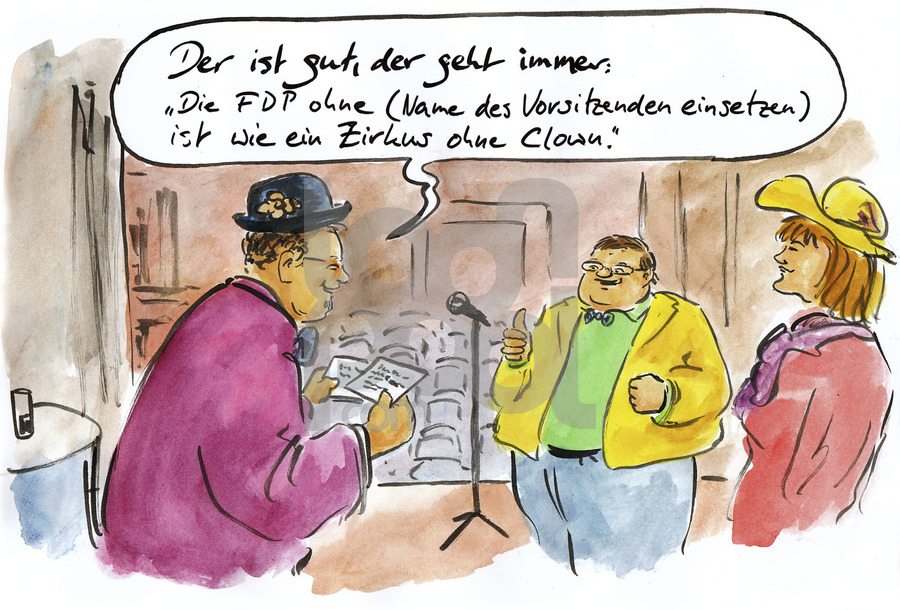 Der ist gut, der geht immer:
„Die FDP ohne (Name des Vorsitzenden einsetzen)
ist wie ein Zirkus ohne Clown."